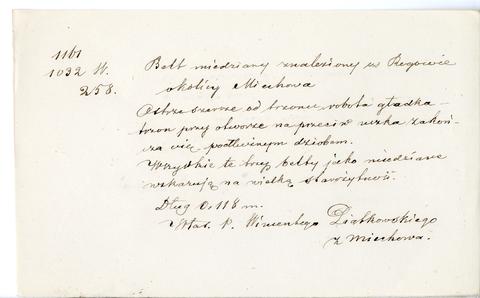 1161
1032 W.
258.
Belt miedziany znaleziony w Regowie
okolicy Miechowa
Ostrze szersze od trzonu robota gładka
trzon przy otworze na przeciw uszka zakoń-
cza się podługowatym dziobem.
Wszystkie te trzy celty jako miedziane
wskazują na wielką starożytność.
Dług 0,118 m.
Włas. P. Wincentego Piatkowskiego
z Miechowa.